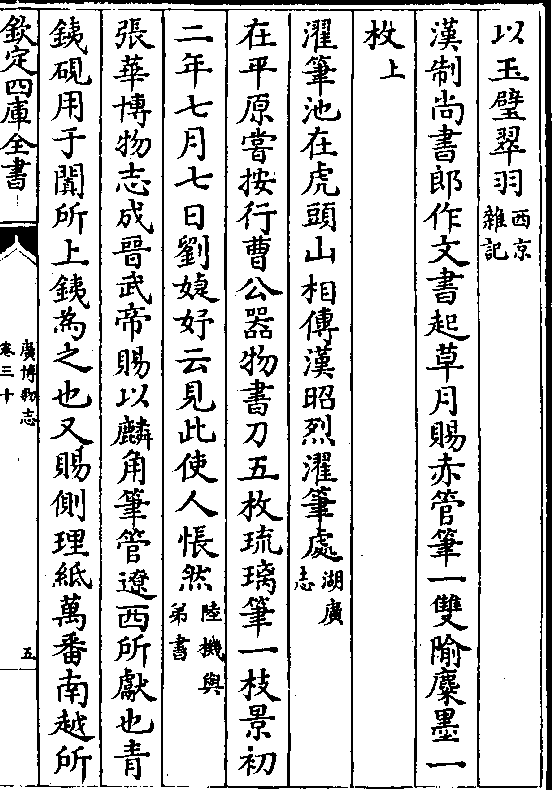 以玉璧翠羽西京雜記
漢制尚書郎作文書起草月賜赤管筆一雙隃麋墨一
枚上
濯筆池在虎頭山相傳漢昭烈濯筆處湖廣志
在平原嘗按行曹公器物書刀五枚琉璃筆一枝景初
二年七月七日劉婕妤云見此使人悵然陸機與弟書
張華博物志成晉武帝賜以麟角筆管遼西所獻也青
鐵硯用于闐所上鐵為之也又賜側理紙萬番南越所
欽定四庫全書
廣博物志
卷三十
五